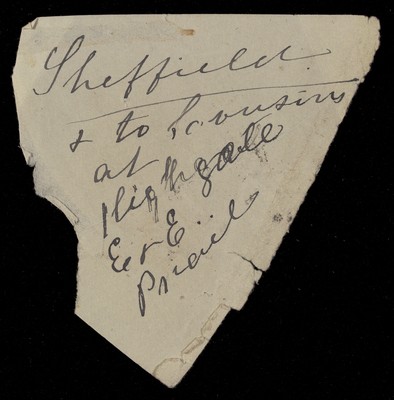 Sheffield.
& to Cousins
at
Highgate
E & E..